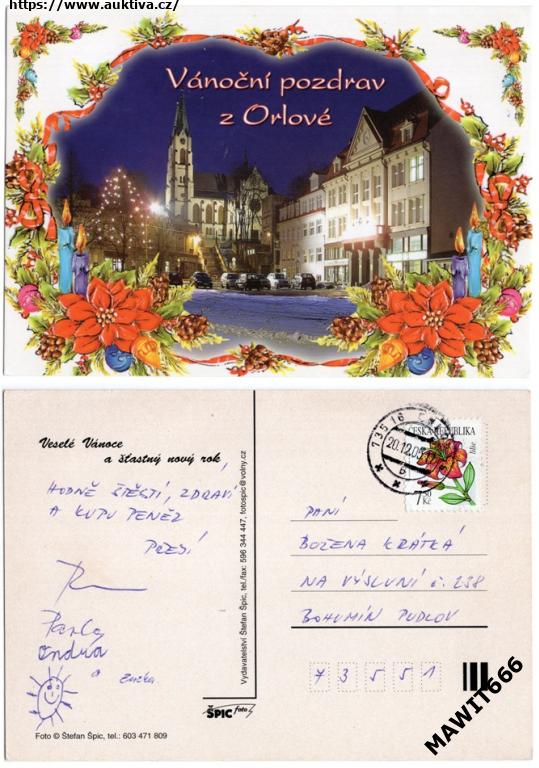 https://www.auktiva.cz/
Vánoční pozdrav
z Orlové
Veselé Vánoce
a šťastný nový rok
HODNĚ ŠTĚSTÍ, ZDRAVÍ
A KUPU PENĚZ
PŘEJÍ
Pavla
Ondra
a Zuzka
Foto © Štefan Špic, tel.: 603 471 809
Vydavatelství Štefan Špic, tel./fax: 596 344 447, fotospic@volny.cz
ŠPIC foto
735 16
20.12.05
ČESKÁ REPUBLIKA
lilie
7.50 Kč
PANÍ
BOŽENA KRÁTKÁ
NA VÝSLUNÍ č. 238
BOHUMÍN PUDLOV
7 3 5 5 1
MAWIT666